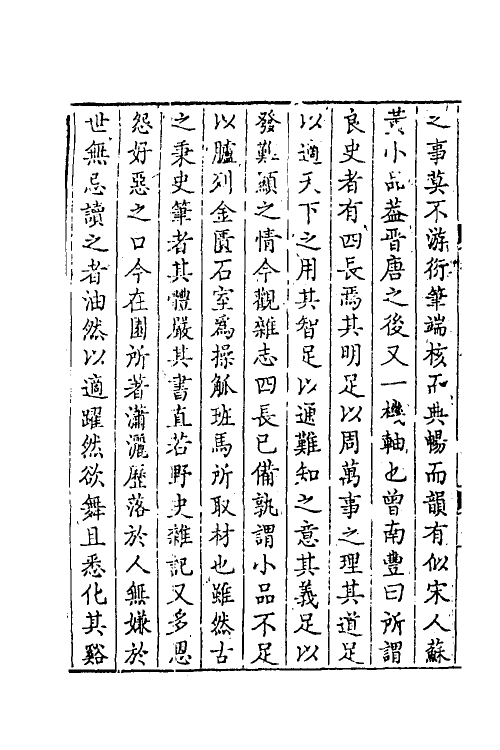 之事莫不游衍筆端核而典暢而韻有似宋人蘇
黃小品葢晉唐之後又一機軸也曾南豐曰所謂
良史者有四長焉其明足以周萬事之理其道足
以適天下之用其智足以通難知之意其義足以
發難顯之情今觀雜志四長已備孰謂小品不足
以臚列金匱石室為操觚班馬所取材也雖然古
之秉史筆者其體嚴其書直若野史雜記又多恩
怨好惡之口今在園所著瀟灑歷落於人無嫌於
世無忌讀之者油然以適躍然欲舞且悉化其谿